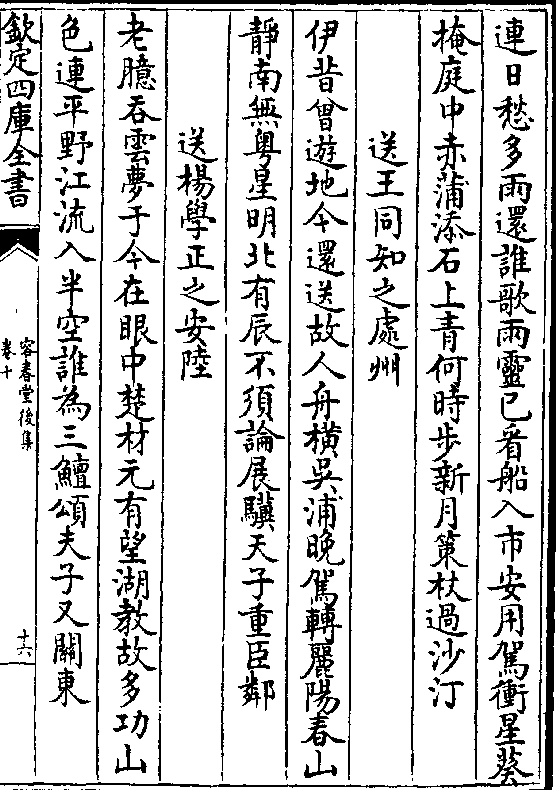 連日愁多雨還誰歌雨靈已看船入市安用駕衝星葵
掩庭中赤蒲添石上青何時步新月策杖過沙汀
送王同知之處州
伊昔曾遊地今還送故人舟横吳浦晚駕轉麗陽春山
靜南無粤星明北有辰不須論展驥天子重臣鄰
送楊學正之安陸
老臆吞雲夢于今在眼中楚材元有望湖教故多功山
色連平野江流入半空誰為三鱣頌夫子又關東
欽定四庫全書
容春堂後集
卷十
十六